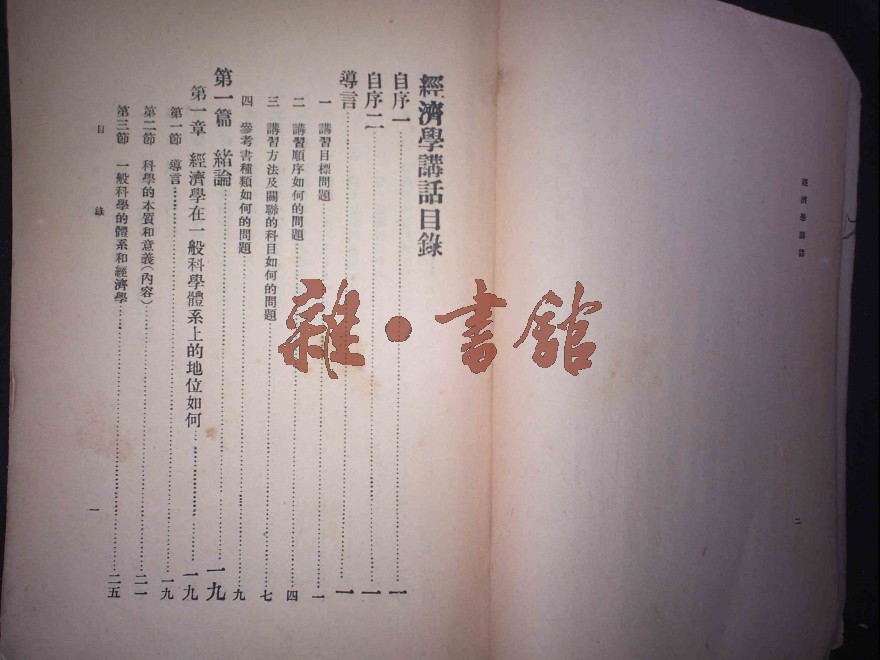 經濟學講話
二
經濟學講話目錄
自序一……一
自序二……一
導言……一
一 講習目標問題……一
二 講習順序如何的問題……四
三 講習方法及關聯的科目如何的問題……七
四 參考書種類如何的問題……九
第一篇 緒論……一九
第一章 經濟學在一般科學體系上的地位如何……一九
第一節 導言……一九
第二節 科學的本質和意義(內容)……二一
第三節 一般科學的體系和經濟學……二五
目錄
一
雜·書館